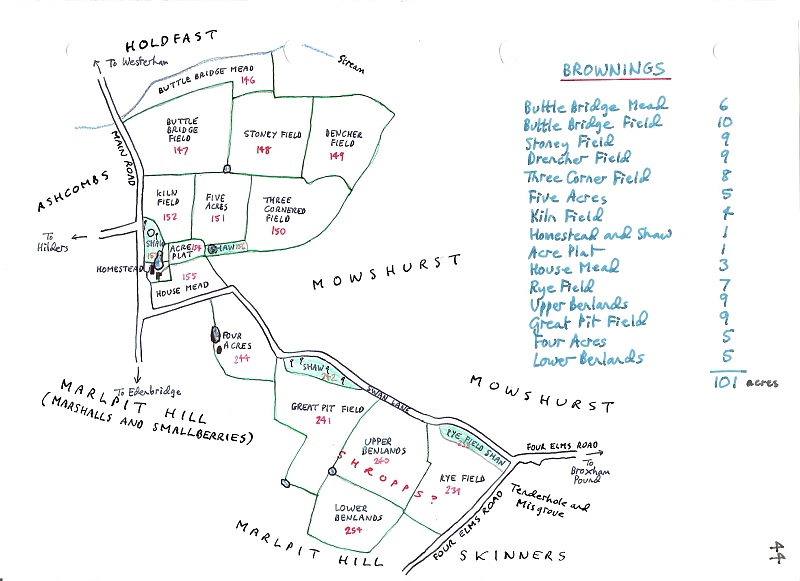 HOLDFAST
To Westerham
Stream
BUTTLE BRIDGE MEAD
146
BUTTLE
BRIDGE
FIELD
147
STONEY FIELD
148
DENCHER
FIELD
149
MAIN ROAD
ASHCOMBS
KILN
FIELD
152
FIVE
ACRES
151
THREE
CORNERED
FIELD
150
To
Hilders
SHAW
ACRE
PLAT
154
SHAW
156
HOMESTEAD
155
HOUSE MEAD
MOWSHURST
FOUR
ACRES
244
To Edenbridge
MARLPIT HILL
(MARSHALLS AND SMALLBERRIES)
SHAW
242
SWAN LANE
MOWSHURST
GREAT PIT FIELD
241
UPPER
BENLANDS
240
SHROPPS?
RYE FIELD SHAW
RYE FIELD
239
FOUR ELMS ROAD
To
Broxham
Pound
Tenderhole and
Misgrove
LOWER
BENLANDS
254
FOUR ELMS ROAD
MARLPIT HILL
SKINNERS
BROWNINGS
Buttle Bridge Mead 6
Buttle Bridge Field 10
Stoney Field 9
Drencher Field 9
Three Corner Field 8
Five Acres 5
Kiln Field 4
Homestead and Shaw 1
Acre Plat 1
House Mead 3
Rye Field 7
Upper Benlands 9
Great Pit Field 9
Four Acres 5
Lower Benlands 5
101 acres
44